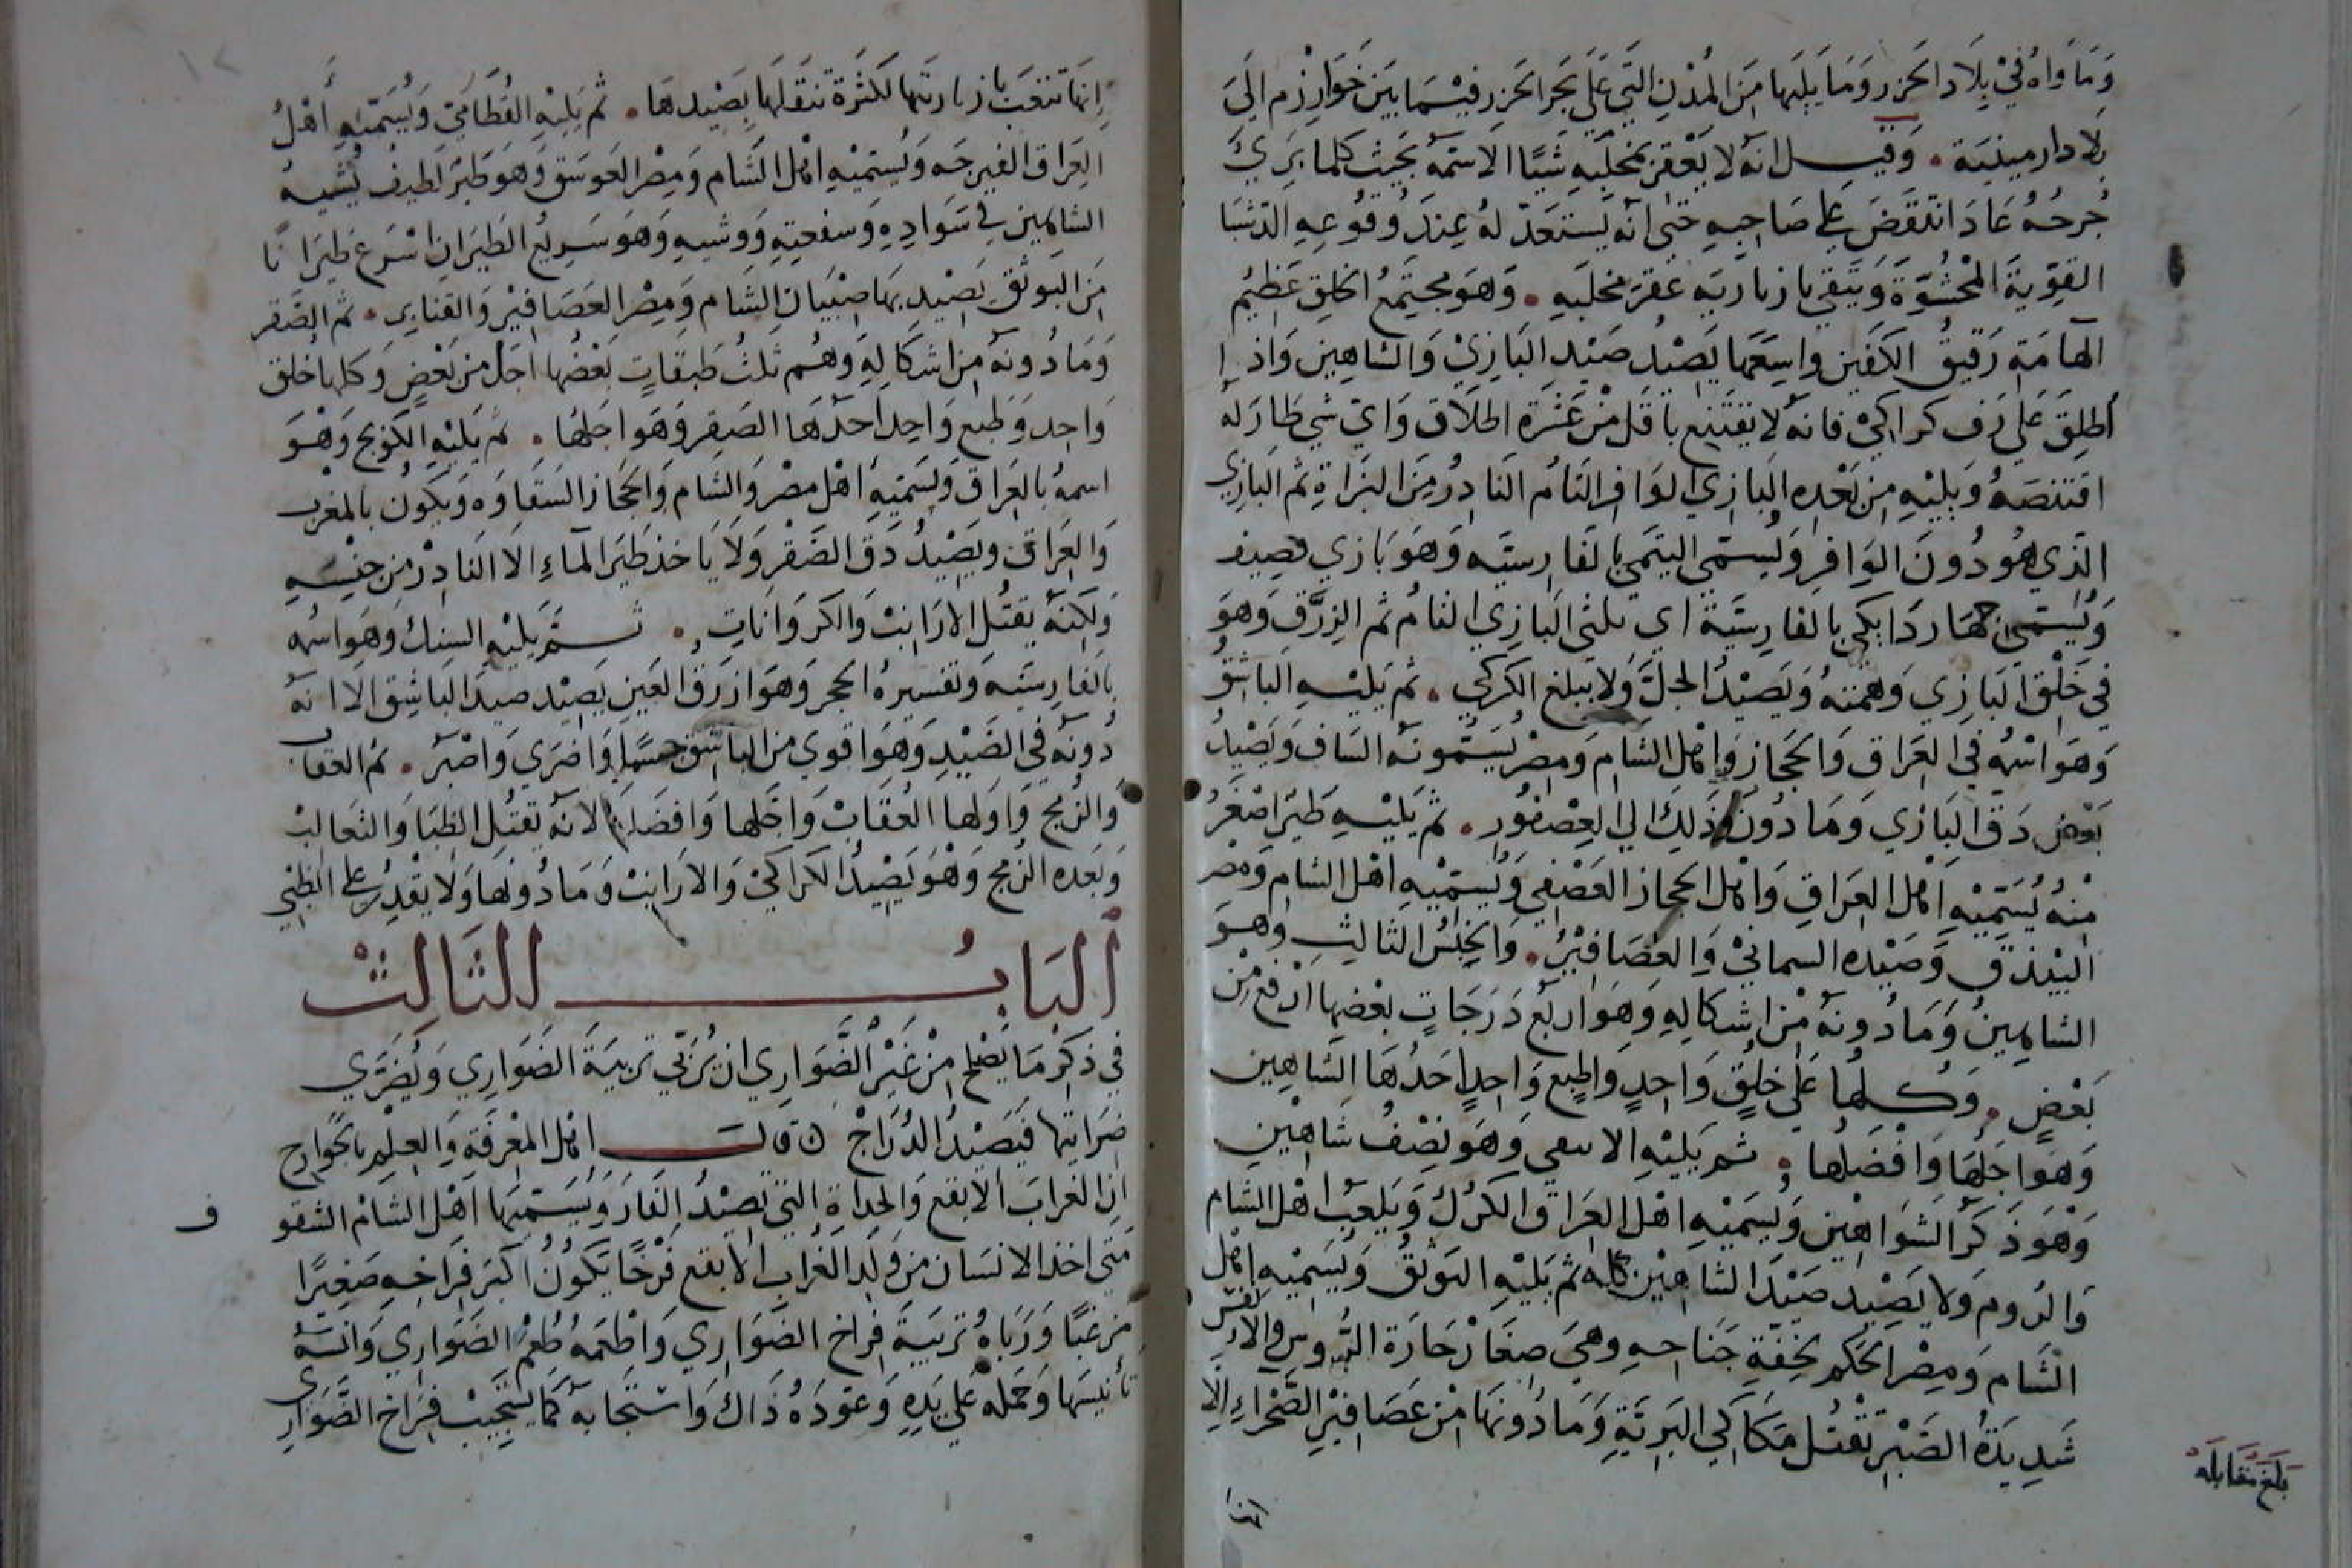 وَمَاوَاهُ فِيْ بِلَادِ الخَزَر وَمَا يَلِيَهَا مِنَ المُدْنِ التي عَلَى بَحر الخَزر فِيْمَا بَيْنَ خَوَارِزْم الَى
بلاد ارمينية . وَقيل انه لا يَعْقر بمخلَبِهِ شَيًا الا سَمّه بحيث كلما بَرِئَ
جُرحُهُ عَادَ انتقضَ على صَاحِبِهِ حتى انه يستَعَدّ لهُ عِندَ وُقُوعِهِ الدَستبَا
القوّيةَ المحْشُوّةَ وَيَتقي بازيارية عقرَ مخلَبهِ . وَهوَ مجتَمعُ الخلق عَظيمُ
الهَامَةِ رَقيقُ الكَفين واسِعَها يَصيْدُ صَيْدَ البَازِيْ وَالشَاهِين وَاذا
اُطلِقَ عَلى رَف كراكيْ فانه لا يقتَنع باقلَ مِنْ عَشرَة اطلَاق وَايّ شي طارَ لهُ
اقتنصَهُ وَيليْهِ مِن بَعْدِه البَازِي الوَافِر التَامُ النَادِرُ مِنَ البُزَاةِ ثم البَازِي
الذِي هوُ دُونَ الوَافِر وَيُسمّي اليتمي بالفَارِستَيه وَهوَ بَازي نصِيف
وَيُسمّى جهَاردَ ابكي بالفارِسيَّة اي ثلثي البَازِي التامُ ثم الزرَّق وَهوَ
في خَلْق البَازِي وَهمّتهُ وَيَصيْدُ الجلَّ وَلا يبلغ الكركي . ثم يَليْهِ البَاشقُ
وَهوَ اسْمُه في العرَاقِ وَالحجَاز وَاهل الشام وَمصْر يُسَمُّونَه السَاف وَيَصيْدُ
بَعْض دَق البَازي وَمَا دُونَ ذَلِكَ الى العِصْفُور . ثم يَليْهِ طَير اصْغَرُ
مِنْهُ يُسَمّيْهِ اهل العرَاقِ وَاهل الحجاز العَصْفي وَيُسمّيْهِ اهل الشام وَمصر
البيْذق وَصَيْده السمانيْ وَالعَصَافيْرُ . وَالجنْسُ الثالث وهوَ
الشاهِينُ وَمَادُونهُ مِن اشكالِهِ وَهوَ اربَعَ دَرَجَاتٍ بعْضهَا ارْفع مِن
بَعْضٍ . وَكلها عَلى خلقٍ وَاحِدٍ وَاطبع وَاحِدٍ احَدُهَا الشَاهِين
وَهوَ اجَلها وَافْضَلها . ثم يَليْهِ وَهوَ نصْفُ شَاهِين
وَهْوَ ذَكَرُ الشَوَاهِين وَيُسَميْهِ اهل العرَاق الكرَّك وَيلعبُ اهل الشام
وَالرُوم وَلا يَصيْد صَيْدَ الشاهِيْن كله ثم يَليْهِ اليَوثقُ وَيُسَميْهِ اهل
الشَام وَمِصْر الحَكم لخِفَّةِ جَنَاحِهِ وهيَ صِغَار حَارَة الرؤوس والانفس
شَدِيدَةُ الصَبْر تَقْتل مكاكي البَرِيَّةِ وَمَادُونهَا مِن عَصَافيْرِ الصَحْراءِ الا
بَلغَ مقَابَله
انها
إنهَا تتعَبُ بازيَارتها لكثرَة تنقلهَا بصَيْدهَا . ثم يَليْهِ القُطَامي وَيُسَمّيْهِ أَهْلُ
العِراق الفيرجَه وَيُسَمّيْهِ اهل الشَام وَمِصْر العَوسَق وَهوَ طَيْر لَطيف يشْبه
الشَاهِين في سَوَادِهِ وَسفعَتِهِ وَوشيه وَهوَ سَرِيْعُ الطَيَرَانِ اسْرَع طيَرَانًا
مِنَ اليَوثق يَصيْد بهَا صِبْيَان الشام وَمِصْر العَصَافيْر وَالقنَابِر . ثم الصَّقر
وَمَا دُونهُ مِن اشكَالِهِ وَهُم ثلثُ طَبقَاتٍ بَعْضُها اجَل مِن بَعْضٍ وَكلها خلق
وَاحِد وَطبع وَاحِد احَدهَا الصَقر وَهوَ اجَلها . ثم يَليْهِ الكوَبج وَهْوَ
اسمهُ بالعَرَاق وَيُسَميَهِ اهْل مصْر وَالشَام وَالحجَاز السَقَاوَه وَيكوُن بالمغْرب
وَالعرَاق وَيصَيْدُ دَق الصَقْر وَلَا يَاخذ طَيْر المآءِ الا النَادِرْ مِن جنسِهِ
وَلكنَّه يقتُل الارَانبْ وَالكَرَوَانَاتِ . ثم يَليْهِ السنك وَهوَ اسمه
بالفارستيه وَتفسيره الحجر وَهوَ ازرَق العَيْن يَصيْد صَيدَ البَاشِق الا انه
دُونه في الصَيْدِ وَهوَ اقوي من الباشق جسمًا وَاضرَي وَاصْبَر . ثم العقاب
وَالزُمج وَاوَلها العُقَابْ وَاجَلها وَافضَلها لانه يَقْتُل الظِبَا وَالثعَالبْ
وَبَعْده الزُمج وَهْوَ يَصيْدُ الكرَاكيْ وَالارَانبْ وَمَا دُونهَا وَلا يقْدِرُ على الظبي
البَابُ الثَّالِثْ
في ذكْر مَا يَصْلح مِنْ غَيْر الضَّوَارِي ان تُرَبّي تربيَةَ الضَوَارِي وَيُضَرَّي
ضرَايتها فيَصيْدُ الدُرَاجْ ن قالت اهل المعْرفَةِ وَالعِلْمِ بالجَوَارِح
ان الغرَابَ الابقع وَالحدَاةِ التي تصيْدُ الفَارَ وَيُسَمّيَها اهْل الشامْ الشقو
مَتي اخذ الانسَان مِن وَلَدِ الغُرَابِ الابقع فَرْخًا يَكُونُ اكبَر فِرَاخِهِ صَغِيرًا
مزغبًا وَرَبَاهُ تربيَةَ فِراخ الضَوَارِي وَاطْعَمهُ طُعْمَ الضَوَارِي وَانسَهُ
تأنيسَها وَحَملَه عَلي يَدِهِ وَعَوّدَهُ ذَاكَ وَاستَجَابه كما يَسْتَجيبْ فِرَاخ الضَّوَارِي
ف